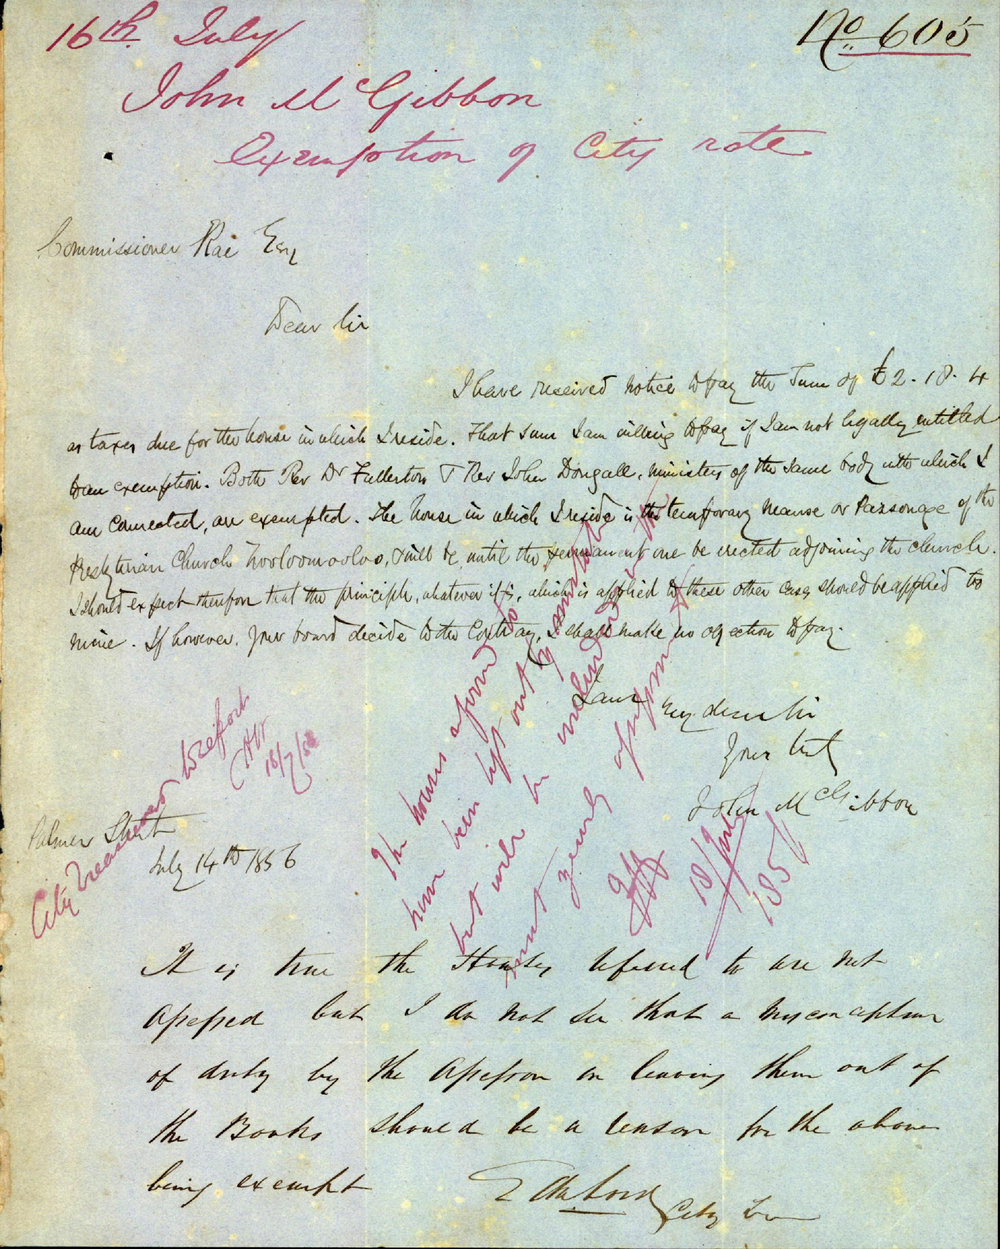 16th July
No 605
John McGibbon
Exemption of City rate
Commissioner Rae Esq
Dear Sir
I have received notice to pay the Sum of £2.18.4
as taxes due for the house in which I reside. That sum I am willing to pay if I am not legally entitled
to an exemption. Both Rev Dr Fullerton & Rev John Dougall, ministers of the same body with which I
am connected, are exempted. The house in which I reside is the temporary manse or Parsonage of the
Presbyterian Church Woolloomooloo, & will be, until the permanent one be erected adjoining the church.
I should expect therefore that the principle, whatever it is, which is applied to these other cases should be applied to
mine. If however, your board decide to the Contrary, I shall make no objection to pay.
I am My dear Sir
Yours truly
John McGibbon
Palmer Street
July 14th 1856
City Treasurer to report
18/7/56
The houses referred to
have been left out by
but will be included in the
next years assessment
18/July
1856
It is true the Houses referred to are not
assessed but I do not see that a misconception
of duty by the assessors in leaving them out of
the Books should be a reason for the above
being exempt
City Trea